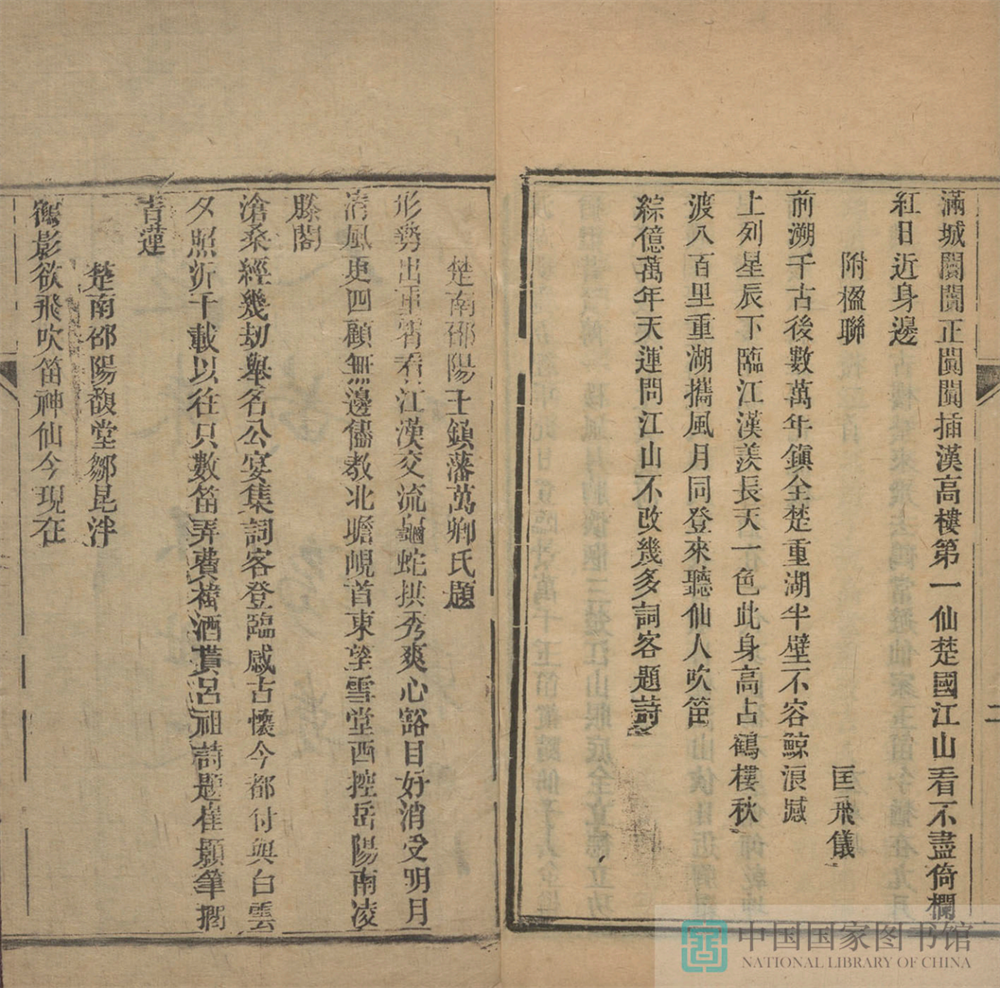 滿城闤闠正闐闐插漢高樓第一仙楚國江山看不盡倚欄
紅日近身邊
附楹聯
匡飛儀
前溯千古後數萬年鎭全楚重湖半壁不容鯨浪撼
上列星辰下臨江漢羨長天一色此身高占鶴樓秋
渡八百里重湖攜風月同登來聽仙人吹笛
綜億萬年天運問江山不改幾多詞客題詩
二
楚南邵陽王鎮藩萬卿氏題
形勢出重霄看江漢交流龜蛇拱秀爽心豁目好消受明月
清風更四顧無邊儘教北瞻峴首東望雪堂西控岳陽南凌
滕閣
滄桑經幾劫舉名公宴集詞客登臨感古懷今都付與白雲
夕照泝千載以往只數笛弄費禕酒貰呂祖詩題崔顥筆擱
青蓮
楚南邵陽馥堂鄒昆泮
鶴影欲飛吹笛神仙今現在
中国国家图书馆
NATIONAL LIBRARY OF CHINA